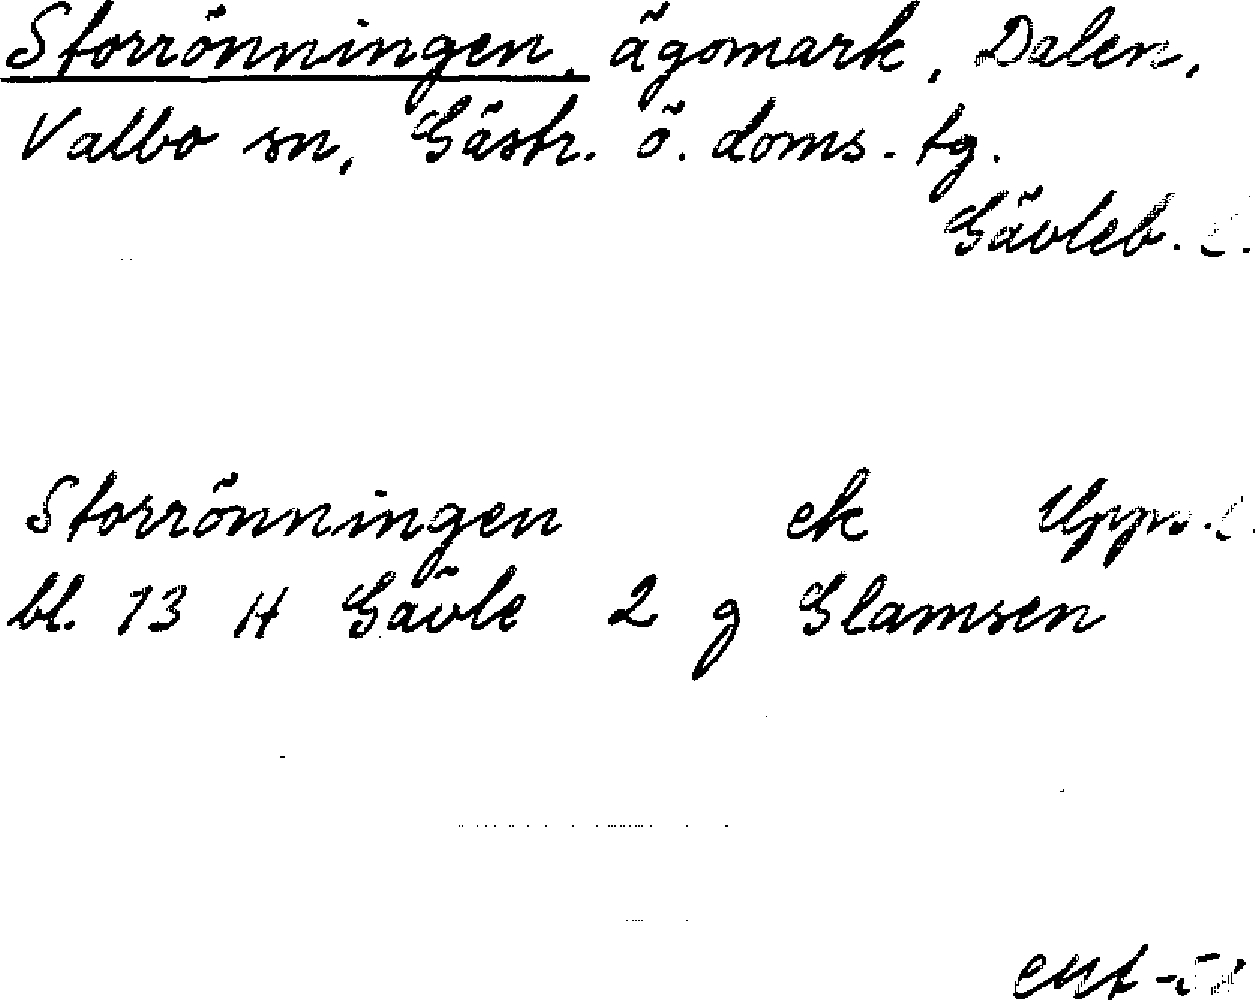 Storrönningen, ägomark, Dalen,
Valbo sn, Gästr. ö. doms.tg.
Gävleb. l.
Storrönningen ek Upps. l.
bl. 13 H Gävle 2 g Glamsen